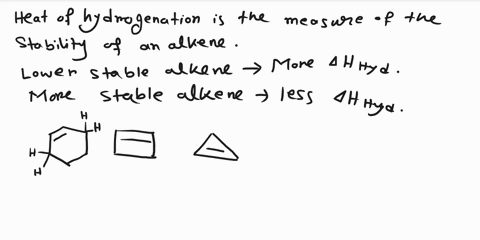 Heat of hydrogenation is the measure of the
Stability of an alkene.
Lower stable alkene → More ΔH Hyd.
More stable alkene → less ΔH Hyd.
H
H
H
H